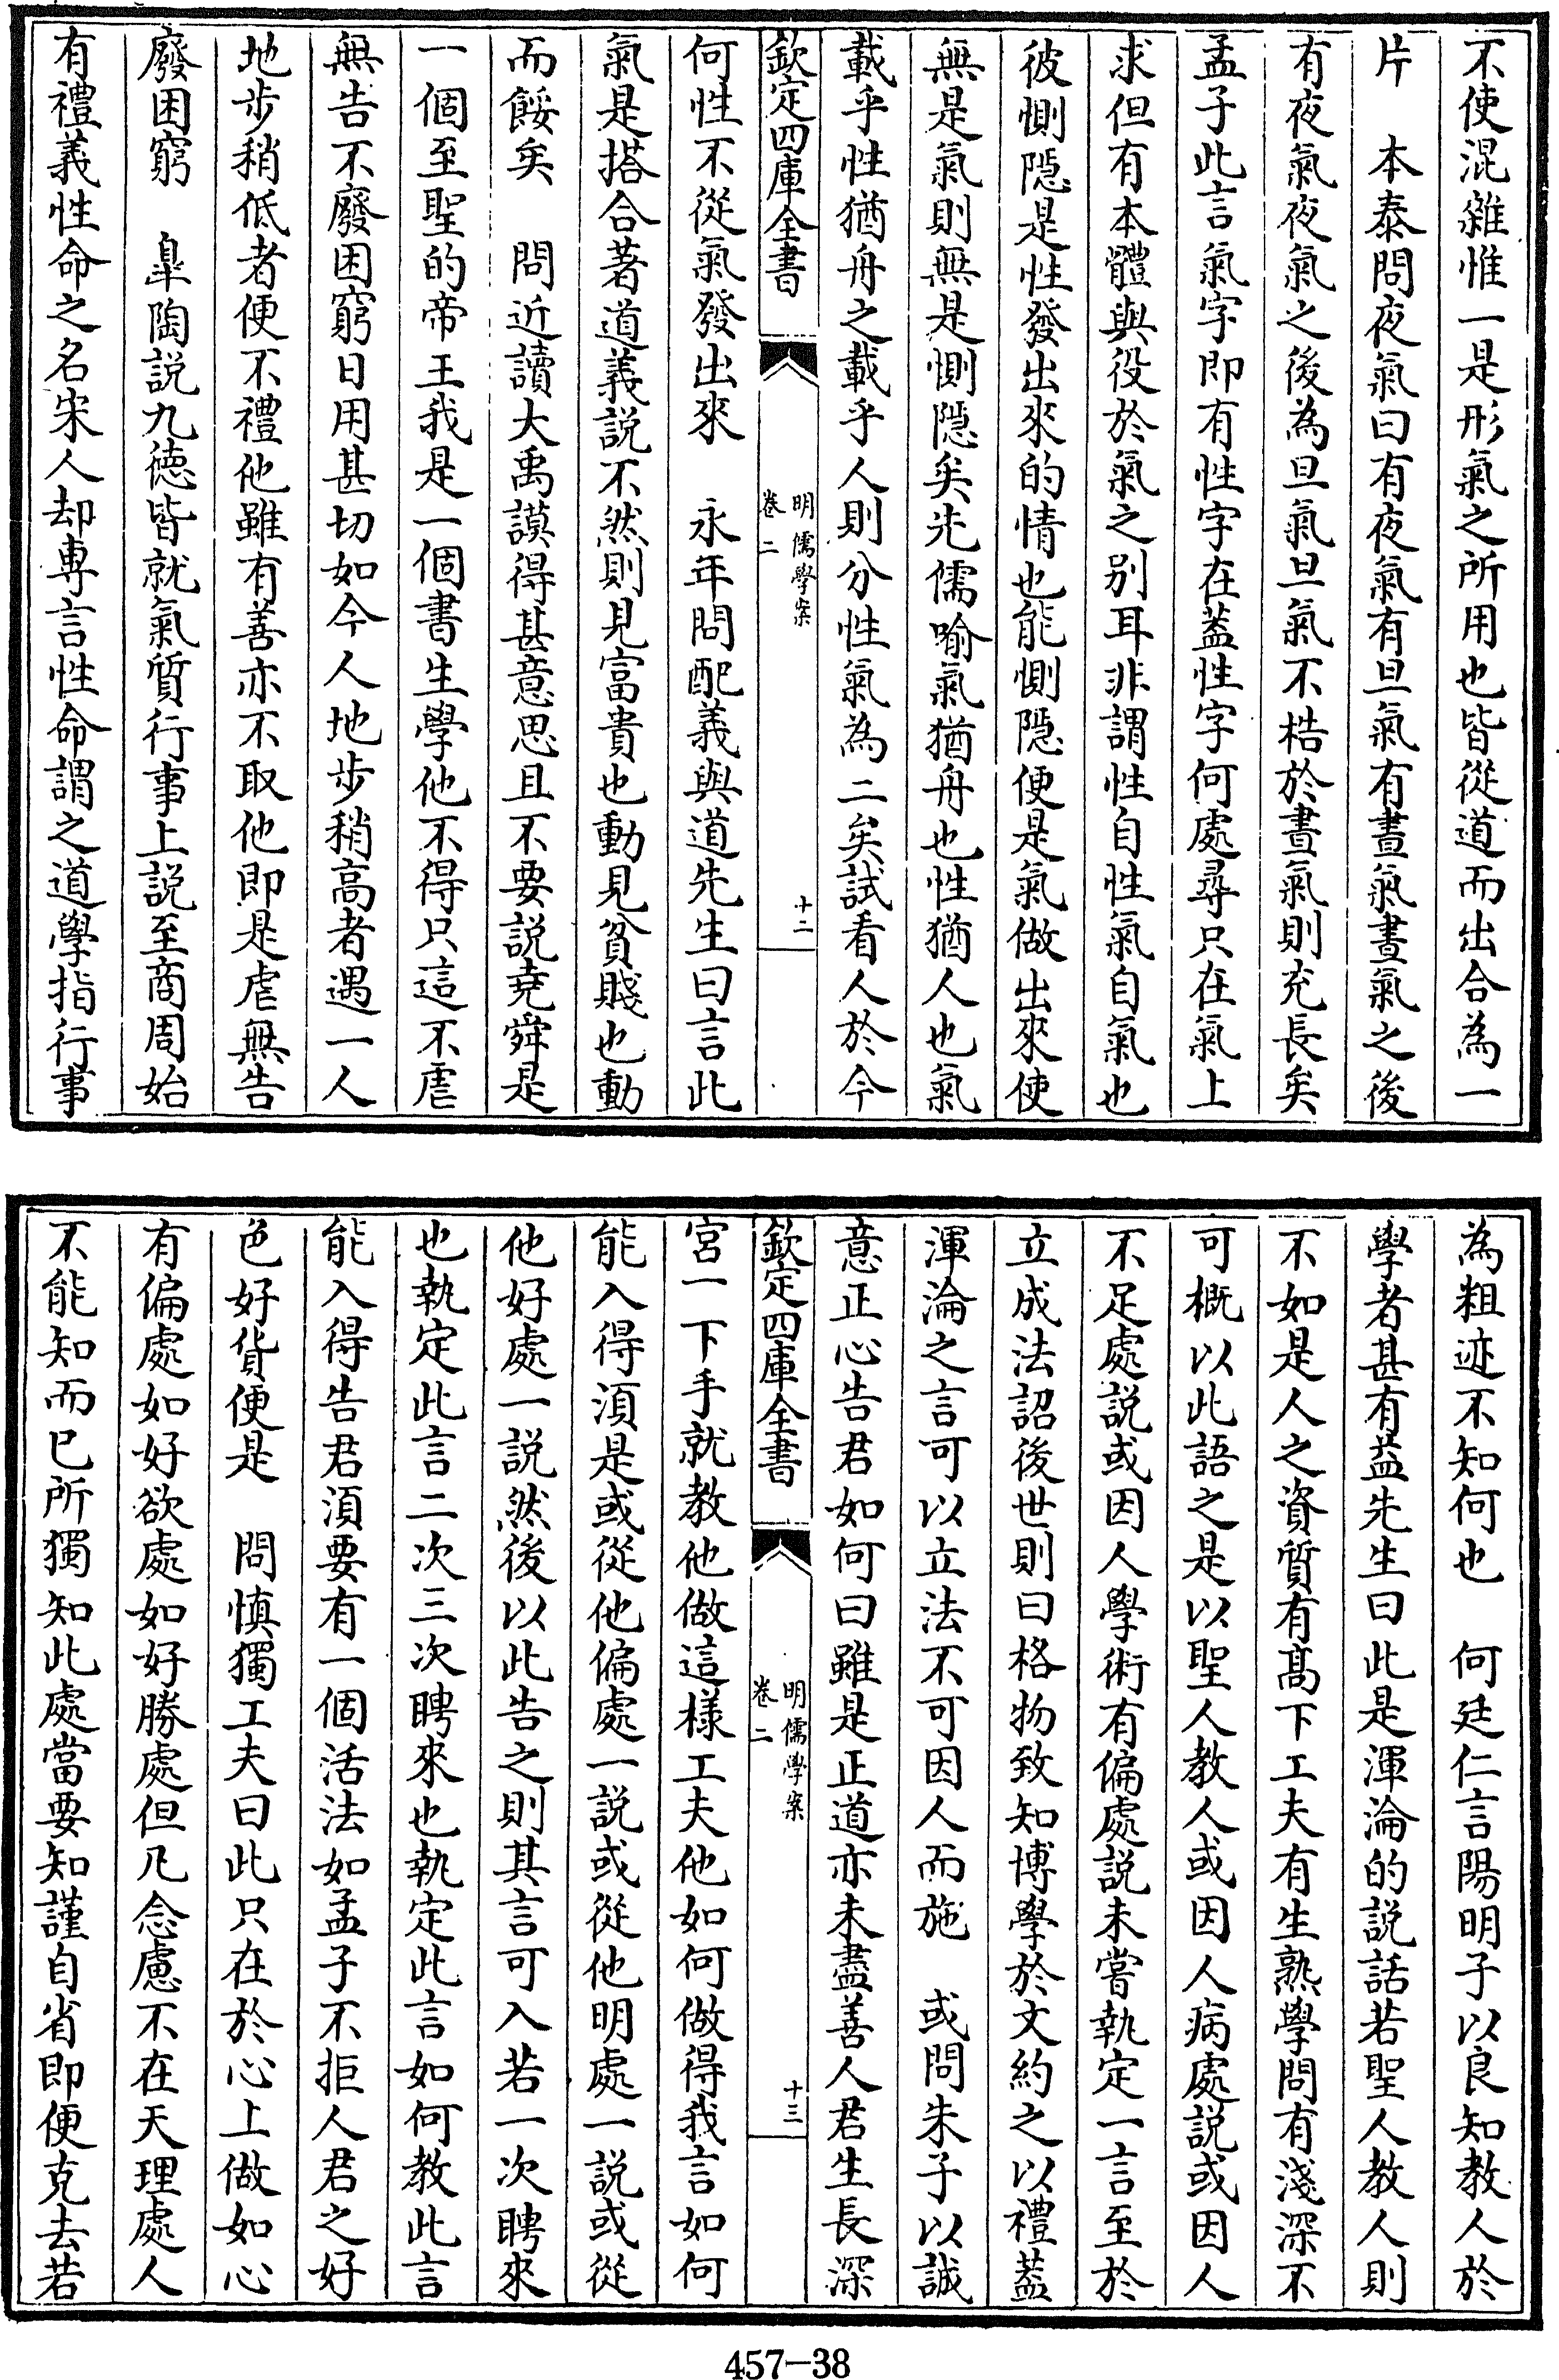 不使混雜惟一是形氣之所用也皆從道而出合為一
片　本泰問夜氣曰有夜氣有旦氣有晝氣晝氣之後
有夜氣夜氣之後為旦氣旦氣不梏於晝氣則充長矣
孟子此言氣字即有性字在蓋性字何處尋只在氣上
求但有本體與役於氣之别耳非謂性自性氣自氣也
彼惻隠是性發出來的情也能惻隠便是氣做出來使
無是氣則無是惻隠矣先儒喻氣猶舟也性猶人也氣
載乎性猶舟之載乎人則分性氣為二矣試看人於今
欽定四庫全書
明儒學案
卷二
十二
何性不從氣發出來　永年問配義與道先生曰言此
氣是搭合著道義説不然則見富貴也動見貧賤也動
而餒矣　問近讀大禹謨得甚意思且不要説堯舜是
一個至聖的帝王我是一個書生學他不得只這不虐
無告不廢困窮日用甚切如今人地步稍高者遇一人
地步稍低者便不禮他雖有善亦不取他即是虐無告
廢困窮　臯陶説九徳皆就氣質行事上説至商周始
有禮義性命之名宋人却専言性命謂之道學指行事
為粗迹不知何也　何廷仁言陽明子以良知教人於
學者甚有益先生曰此是渾淪的説話若聖人教人則
不如是人之資質有髙下工夫有生熟學問有淺深不
可概以此語之是以聖人教人或因人病處説或因人
不足處説或因人學術有偏處説未嘗執定一言至於
立成法詔後世則曰格物致知博學於文約之以禮蓋
渾淪之言可以立法不可因人而施　或問朱子以誠
意正心告君如何曰雖是正道亦未盡善人君生長深
欽定四庫全書
明儒學案
卷二
十三
宮一下手就教他做這樣工夫他如何做得我言如何
能入得湏是或從他偏處一説或從他明處一説或從
他好處一説然後以此告之則其言可入若一次聘來
也執定此言二次三次聘來也執定此言如何教此言
能入得告君湏要有一個活法如孟子不拒人君之好
色好貨便是　問慎獨工夫曰此只在於心上做如心
有偏處如好欲處如好勝處但凡念慮不在天理處人
不能知而已所獨知此處當要知謹自省即便克去若
457-38